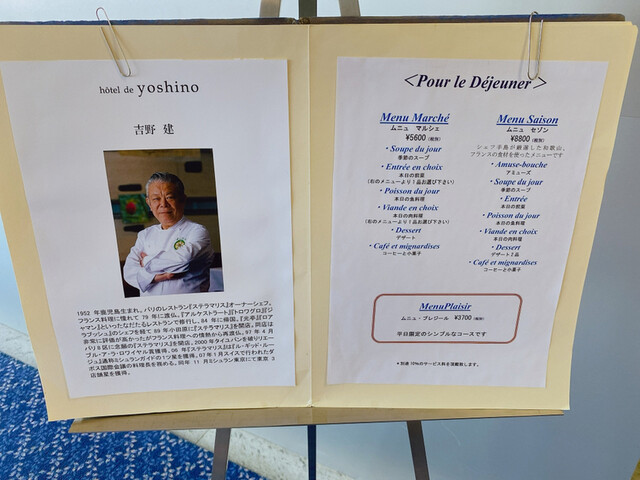 hôtel de yoshino
吉野 建
1952 年鹿児島生まれ。パリのレストラン『ステラマリス』オーナーシェフ。
フランス料理に憧れて 79 年に渡仏。『アルケストラート』『トロワグロ』『ジ
ャマン』といった名だたるレストランで修行し、84 年に帰国。『光亭』『ロア
ラブッシュ』のシェフを経て 89 年小田原に『ステラマリス』を開店。同店は
非常に評価が高かったがフランス料理への情熱から再渡仏。97 年 4 月
パリ 8 区に念願の『ステラマリス』を開店。2000 年タイユバンを破りリエー
ブル・ア・ラ・ロワイヤル賞獲得。06 年『ステラマリス』は『ルギッド・ルー
ジュ』通称ミシュランガイドの 1 ツ星を獲得。07 年 1 月スイスで行われたダ
ボス国際会議の料理長を務める。同年 11 月ミシュラン東京にて東京 3
店舗星を獲得。
<Pour le Déjeuner>
Menu Marché
ムニュ マルシェ
¥5600 (税別)
・Soupe du jour
季節のスープ
・Entrée en choix
本日の前菜
(右のメニューより1品お選び下さい)
・Poisson du jour
本日の魚料理
・Viande en choix
本日の肉料理
(右のメニューより1品お選び下さい)
・Dessert
デザート
・Café et mignardises
コーヒーと小菓子
Menu Saison
ムニュ セゾン
¥8800 (税別)
シェフ手島が厳選した和歌山、
フランスの食材を使ったメニューです
・Amuse-bouche
アミューズ
・Soupe du jour
季節のスープ
・Entrée
本日の前菜
・Poisson du jour
本日の魚料理
・Viande en choix
本日の肉料理
・Dessert
デザート2品
・Café et mignardises
コーヒーと小菓子
MenuPlaisir
ムニュ・プレジール ¥3700 (税別)
平日限定のシンプルなコースです
＊別途 10%のサービス料を頂戴致します。